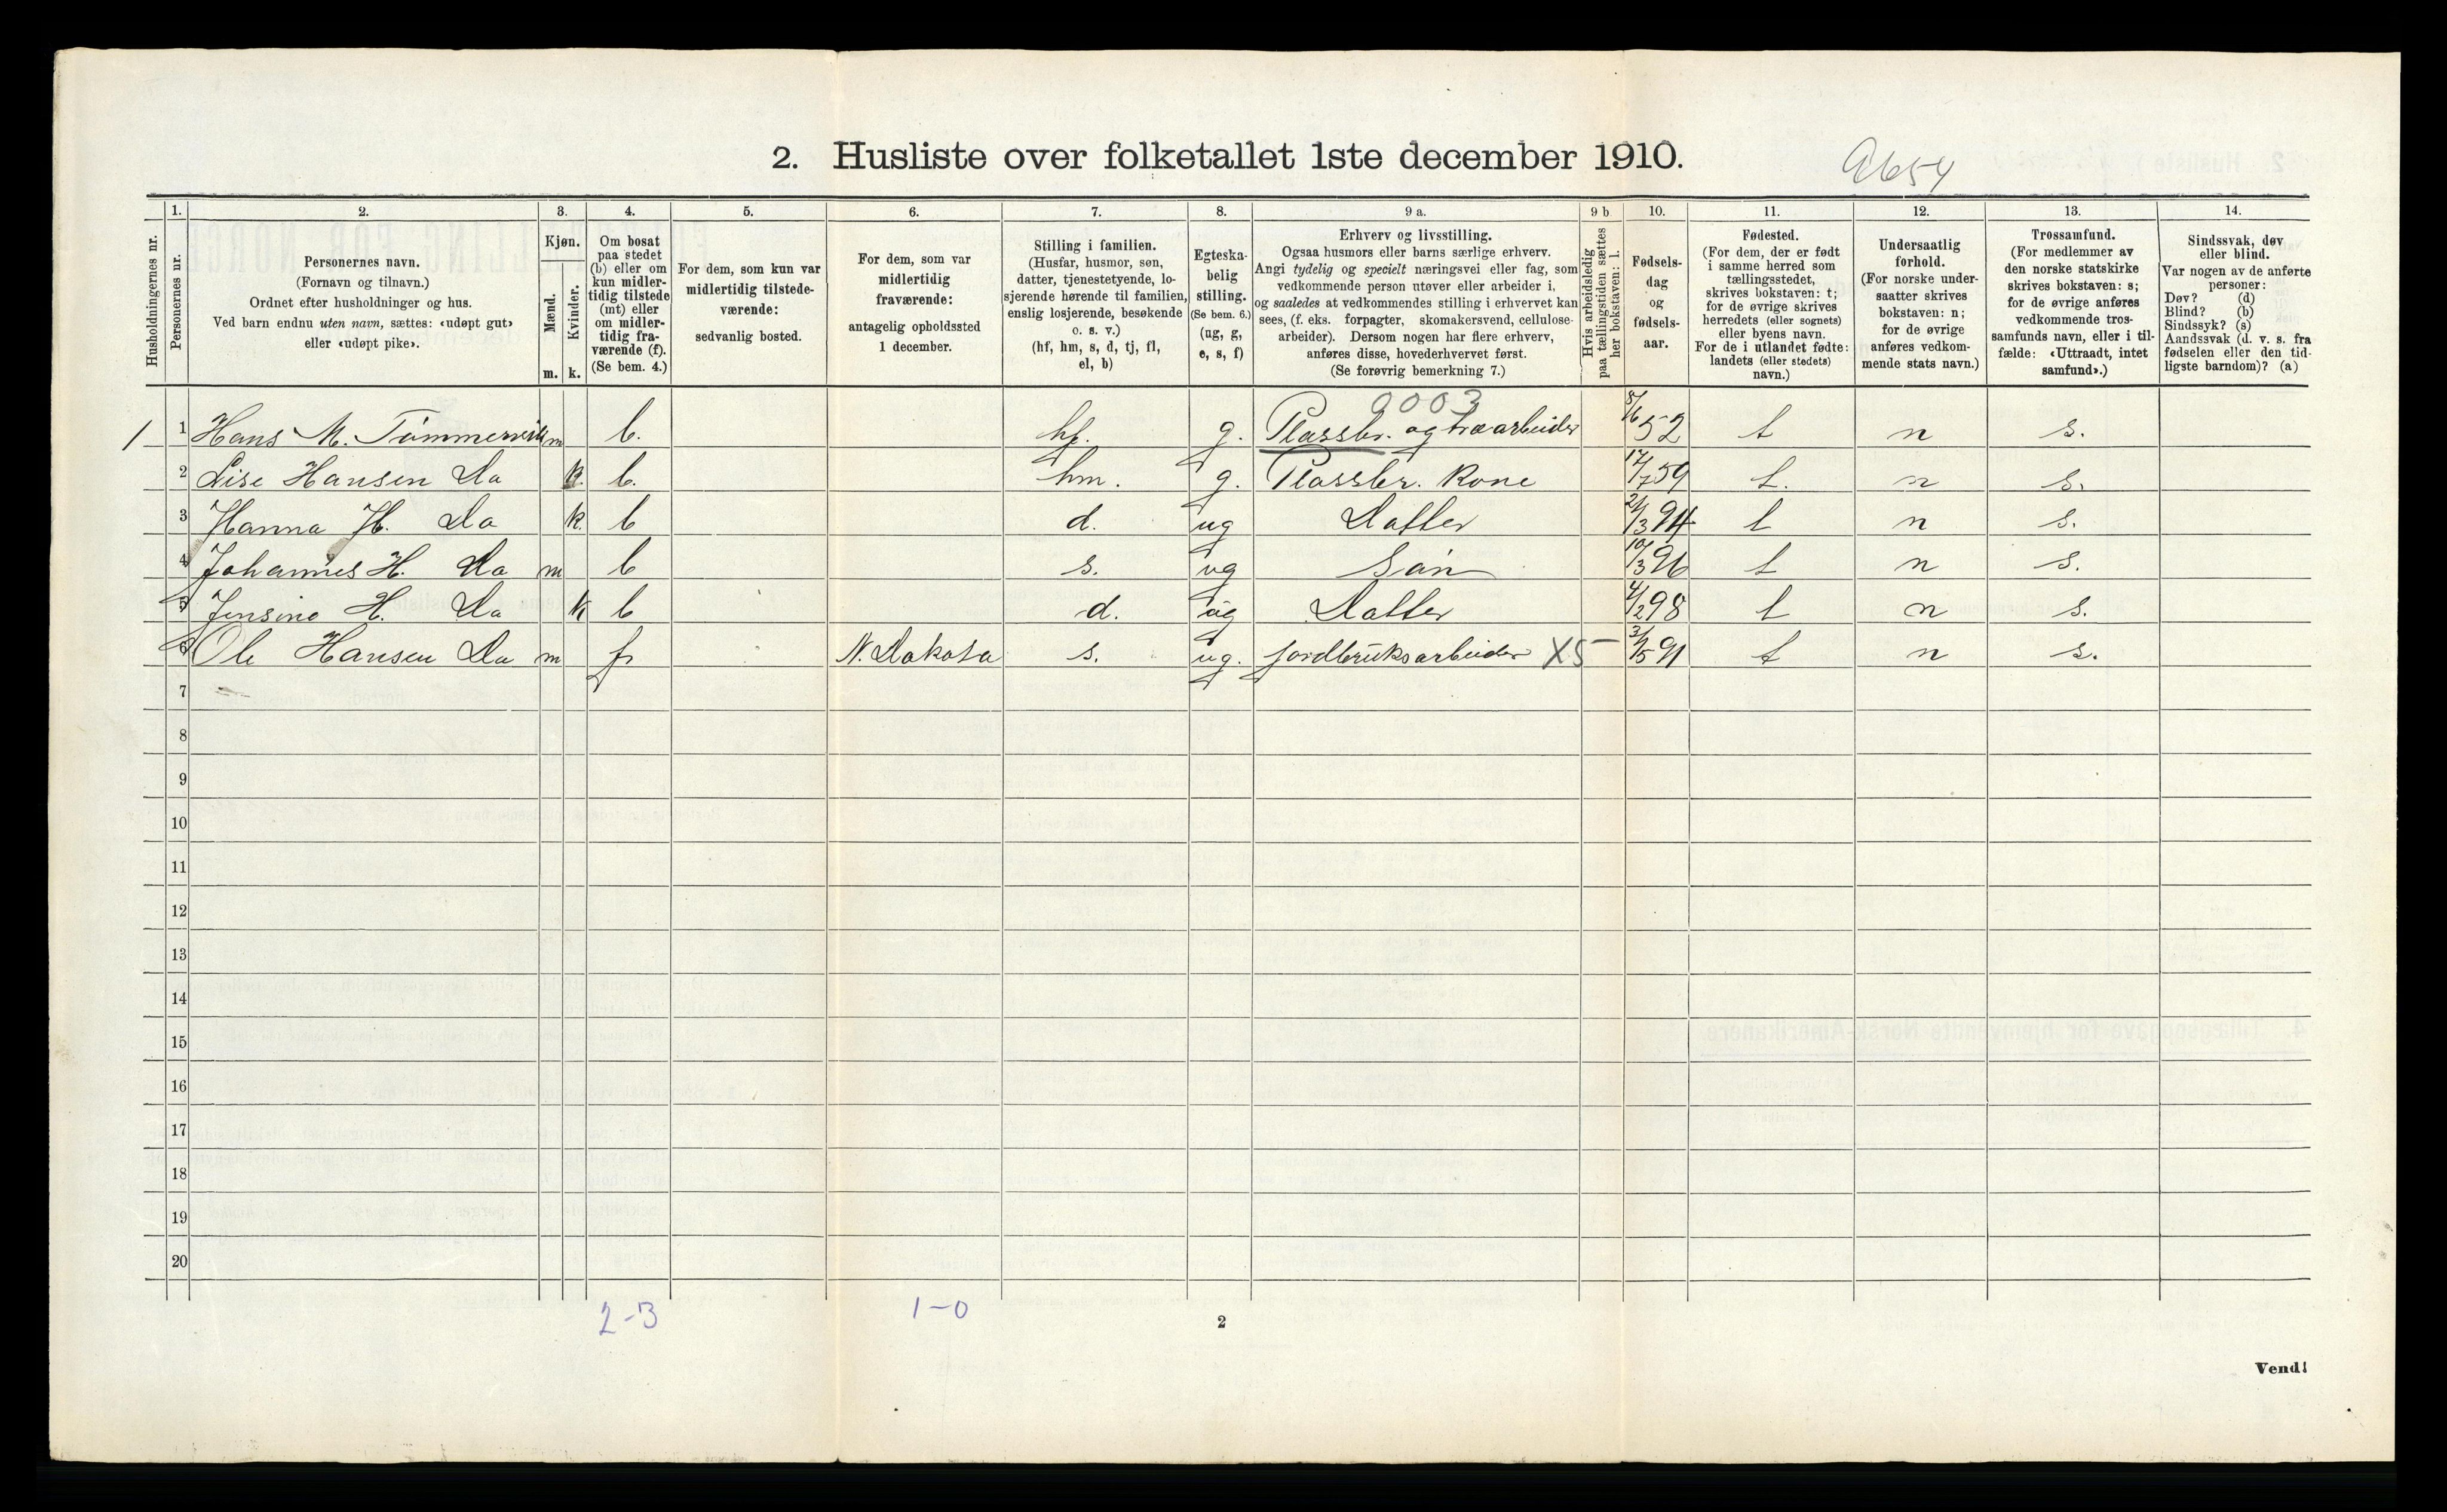 2. Husliste over folketallet 1ste december 1910.
9654
Husholdningernes nr.
1.
Personernes nr.
2.
Personernes navn.
(Fornavn og tilnavn.)
Ordnet efter husholdninger og hus.
Ved barn endnu uten navn, sættes: «udøpt gut»
eller «udøpt pike».
3.
Kjøn.
Mænd.
Kvinder.
m. k.
4.
Om bosat
paa stedet
(b) eller om
kun midler-
tidig tilstede
(mt) eller
om midler-
tidig fra-
værende (f).
(Se bem. 4.)
5.
For dem, som kun var
midlertidig tilstede-
værende:
sedvanlig bosted.
6.
For dem, som var
midlertidig
fraværende:
antagelig opholdssted
1 december.
7.
Stilling i familien.
(Husfar, husmor, søn,
datter, tjenestetyende, lo-
sjerende hørende til familien,
enslig losjerende, besøkende
o. s. v.)
(hf, hm, s, d, tj, fl,
el, b)
8.
Egteska-
belig
stilling.
(Se bem. 6.)
(ug, g,
e, s, f)
9 a.
Erhverv og livsstilling.
Ogsaa husmors eller barns særlige erhverv.
Angi tydelig og specielt næringsvei eller fag, som
vedkommende person utøver eller arbeider i,
og saaledes at vedkommendes stilling i erhvervet kan
sees, (f. eks. forpagter, skomakersvend, cellulose-
arbeider). Dersom nogen har flere erhverv,
anføres disse, hovederhvervet først.
(Se forøvrig bemerkning 7.)
9 b
Hvis arbeidsledig
paa tællingstiden sættes
her bokstaven: l.
10.
Fødsels-
dag
og
fødsels-
aar.
11.
Fødested.
(For dem, der er født
i samme herred som
tællingsstedet,
skrives bokstaven: t;
for de øvrige skrives
herredets (eller sognets)
eller byens navn.
For de i utlandet fødte:
landets (eller stedets)
navn.)
12.
Undersaatlig
forhold.
(For norske under-
saatter skrives
bokstaven: n;
for de øvrige
anføres vedkom-
mende stats navn.)
13.
Trossamfund.
(For medlemmer av
den norske statskirke
skrives bokstaven: s;
for de øvrige anføres
vedkommende tros-
samfunds navn, eller i til-
fælde: «Uttraadt, intet
samfund».)
14.
Sindssvak, døv
eller blind.
Var nogen av de anførte
personer:
Døv? (d)
Blind? (b)
Sindssyk? (s)
Aandssvak (d. v. s. fra
fødselen eller den tid-
ligste barndom)? (a)
0003
1 1 Hans M. Tømmervik m b. hf. g. Plassbr. og træarbeider 8/6 52 t n s.
2 Lise Hansen Do k b. hm. g. Plassbr. Kone 14/7 59 t. n s.
3 Hanna H. Do k. b d. ug Datter 21/3 94 t n s.
4 Johannes H. Do m b s. ug Søn 10/3 96 t n s.
5 Jensine H. Do k b d. ug Datter 4/2 98 t n s.
6 Ole Hansen Do m f N. Dakota s. ug. jordbruksarbeider X5 3/5 91 t n s.
7
8
9
10
11
12
13
14
15
16
17
18
19
20
2-3 1-0
2
Vend!